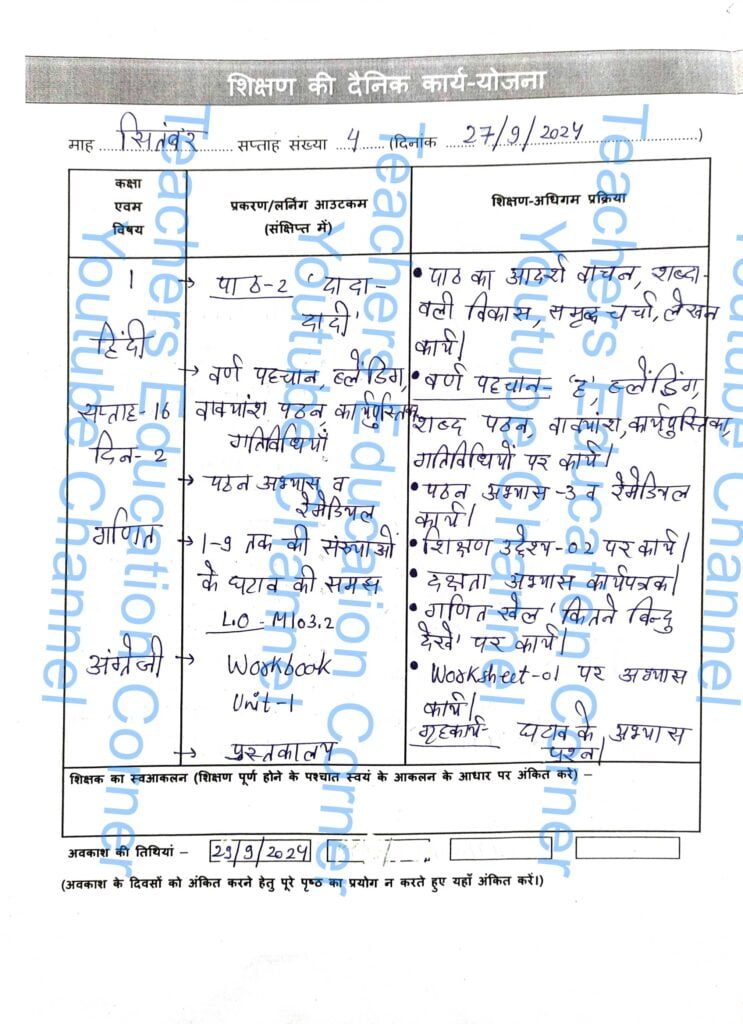 शिक्षण की दैनिक कार्य-योजना
माह सितंबर सप्ताह संख्या 4 (दिनांक 27/9/2024)
कक्षा
एवम
विषय
प्रकरण/लर्निंग आउटकम
(संक्षिप्त में)
शिक्षण-अधिगम प्रक्रिया
1
हिंदी
सप्ताह-16
दिन-2
→ पाठ-2 'दादा-
दादी'
→ वर्ण पहचान, ब्लेंडिंग,
वाक्यांश पठन कार्यपुस्तिका
गतिविधियाँ
→ पठन अभ्यास व
रेमेडियल
• पाठ का आदर्श वाचन, शब्दा-
वली विकास, समृद्ध चर्चा, लेखन
कार्य।
• वर्ण पहचान- 'ह', ब्लेंडिंग,
शब्द पठन, वाक्यांश, कार्यपुस्तिका,
गतिविधियों पर कार्य।
• पठन अभ्यास-3 व रेमेडियल
कार्य।
गणित
→ 1-9 तक की संख्याओं
के घटाव की समझ
L.O - M103.2
• शिक्षण उद्देश्य-02 पर कार्य।
• दक्षता अभ्यास कार्यपत्रक।
• गणित खेल 'कितने बिन्दु
देखे' पर कार्य।
अंग्रेजी
→ Workbook
Unit-1
→ पुस्तकालय
• Worksheet-01 पर अभ्यास
कार्य।
गृहकार्य- घटाव के अभ्यास
प्रश्न।
शिक्षक का स्वआकलन (शिक्षण पूर्ण होने के पश्चात स्वयं के आकलन के आधार पर अंकित करे) –
अवकाश की तिथियां – 29/9/2024
(अवकाश के दिवसों को अंकित करने हेतु पूरे पृष्ठ का प्रयोग न करते हुए यहाँ अंकित करें।)
Teachers Education Corner
Youtube Channel
Teachers Education Corner
Youtube Channel
Teachers Education Corner
Youtube Channel